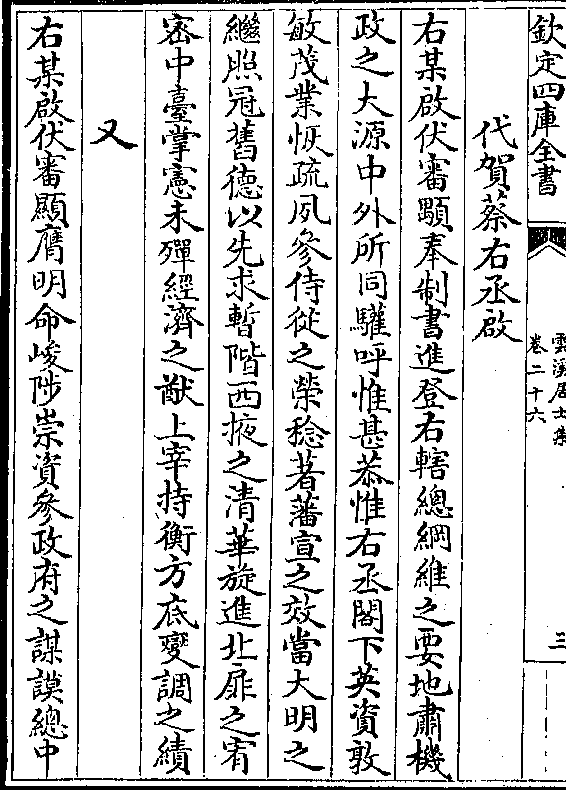 欽定四庫全書
雲溪居士集
卷二十六
三
代賀蔡右丞啟
右某啟伏審顯奉制書進登右轄總綱維之要地肅機
政之大源中外所同驩呼惟甚恭惟右丞閣下英資敦
敏茂業恢疏夙參侍從之榮稔著藩宣之效當大明之
繼照冠舊德以先求暫階西掖之清華旋進北扉之宥
密中臺掌憲未殫經濟之猷上宰持衡方底變調之績
又
右某啟伏審顯膺明命峻陟崇資參政府之謀謨總中